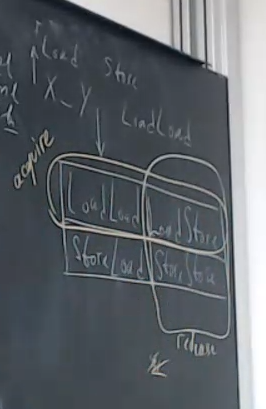 Load Store
X_Y
LoadLoad
acquire
LoadLoad LoadStore
StoreLoad StoreStore
release